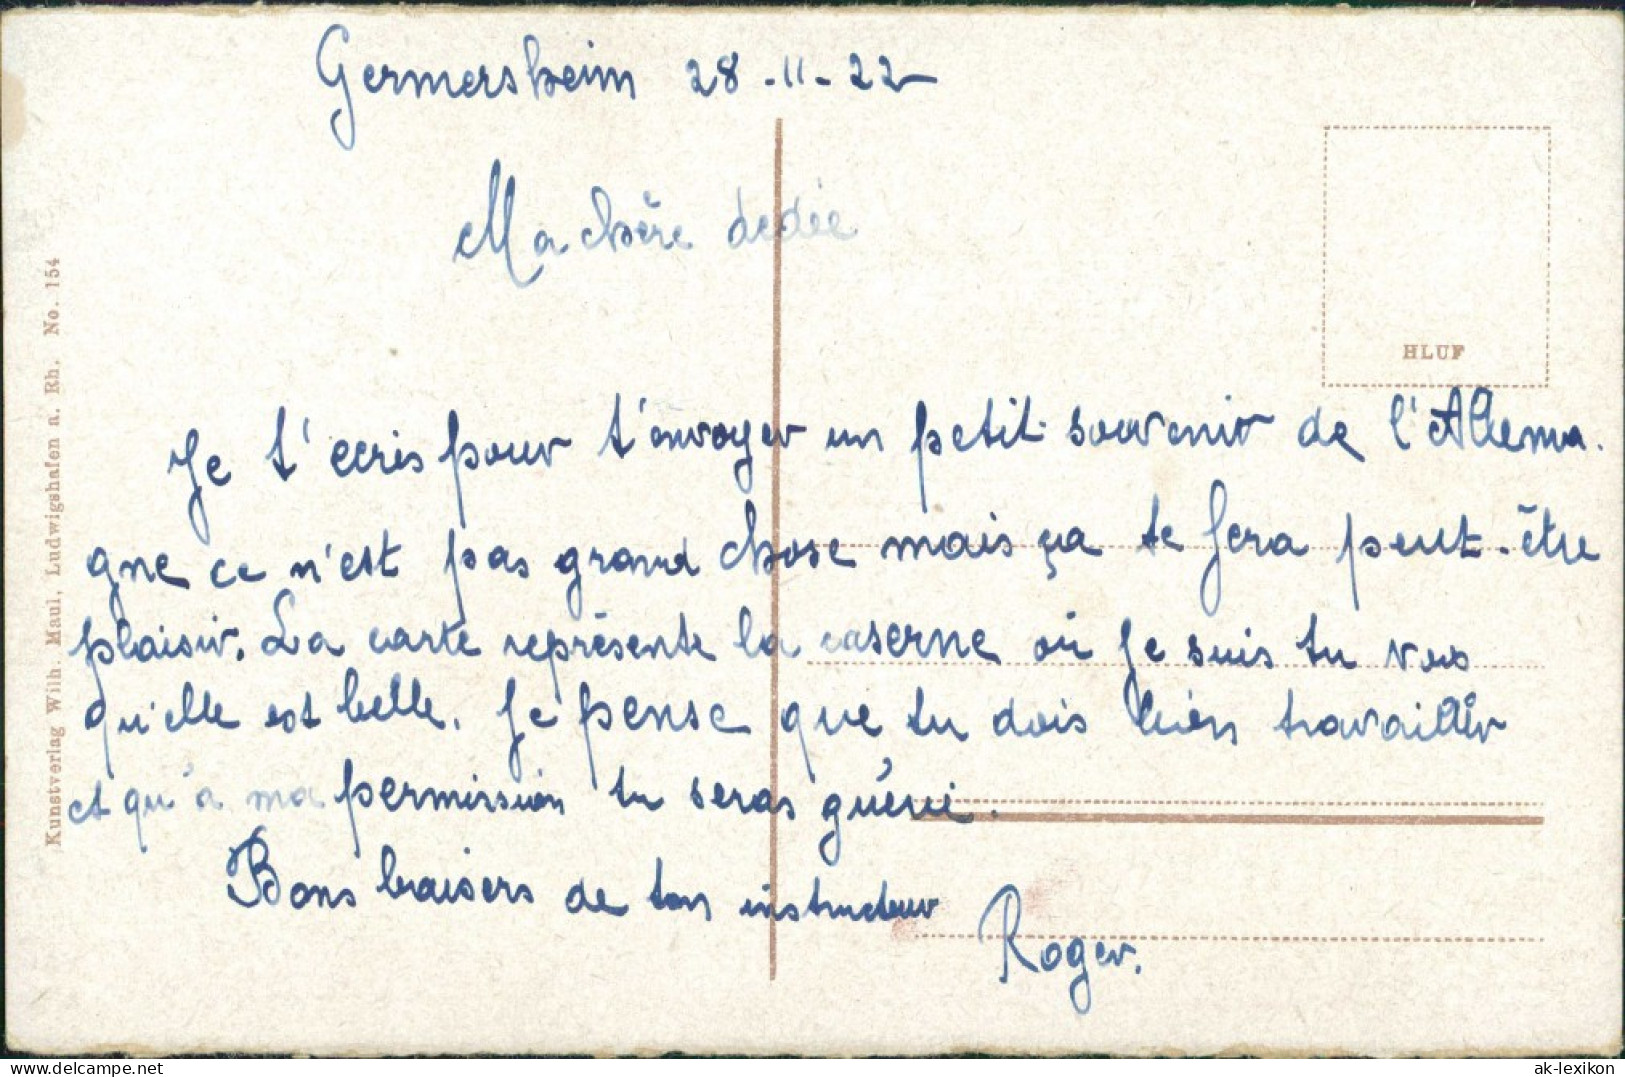 Germersheim 28-11-22
Ma chère dedée
HLUF
Je t'ecris pour t'envoyer un petit souvenir de l'Allema.
gne ce n'est pas grand chose mais ça te fera peut-être
plaisir. La carte représente la caserne où je suis tu vois
qu'elle est belle. Je pense que tu dois bien travailler
et qu'à ma permission tu seras guérie.
Bons baisers de ton instructeur
Roger.
Kunstverlag Wilh. Maul, Ludwigshafen a. Rh. No. 154
delcampe.net
ak-lexikon